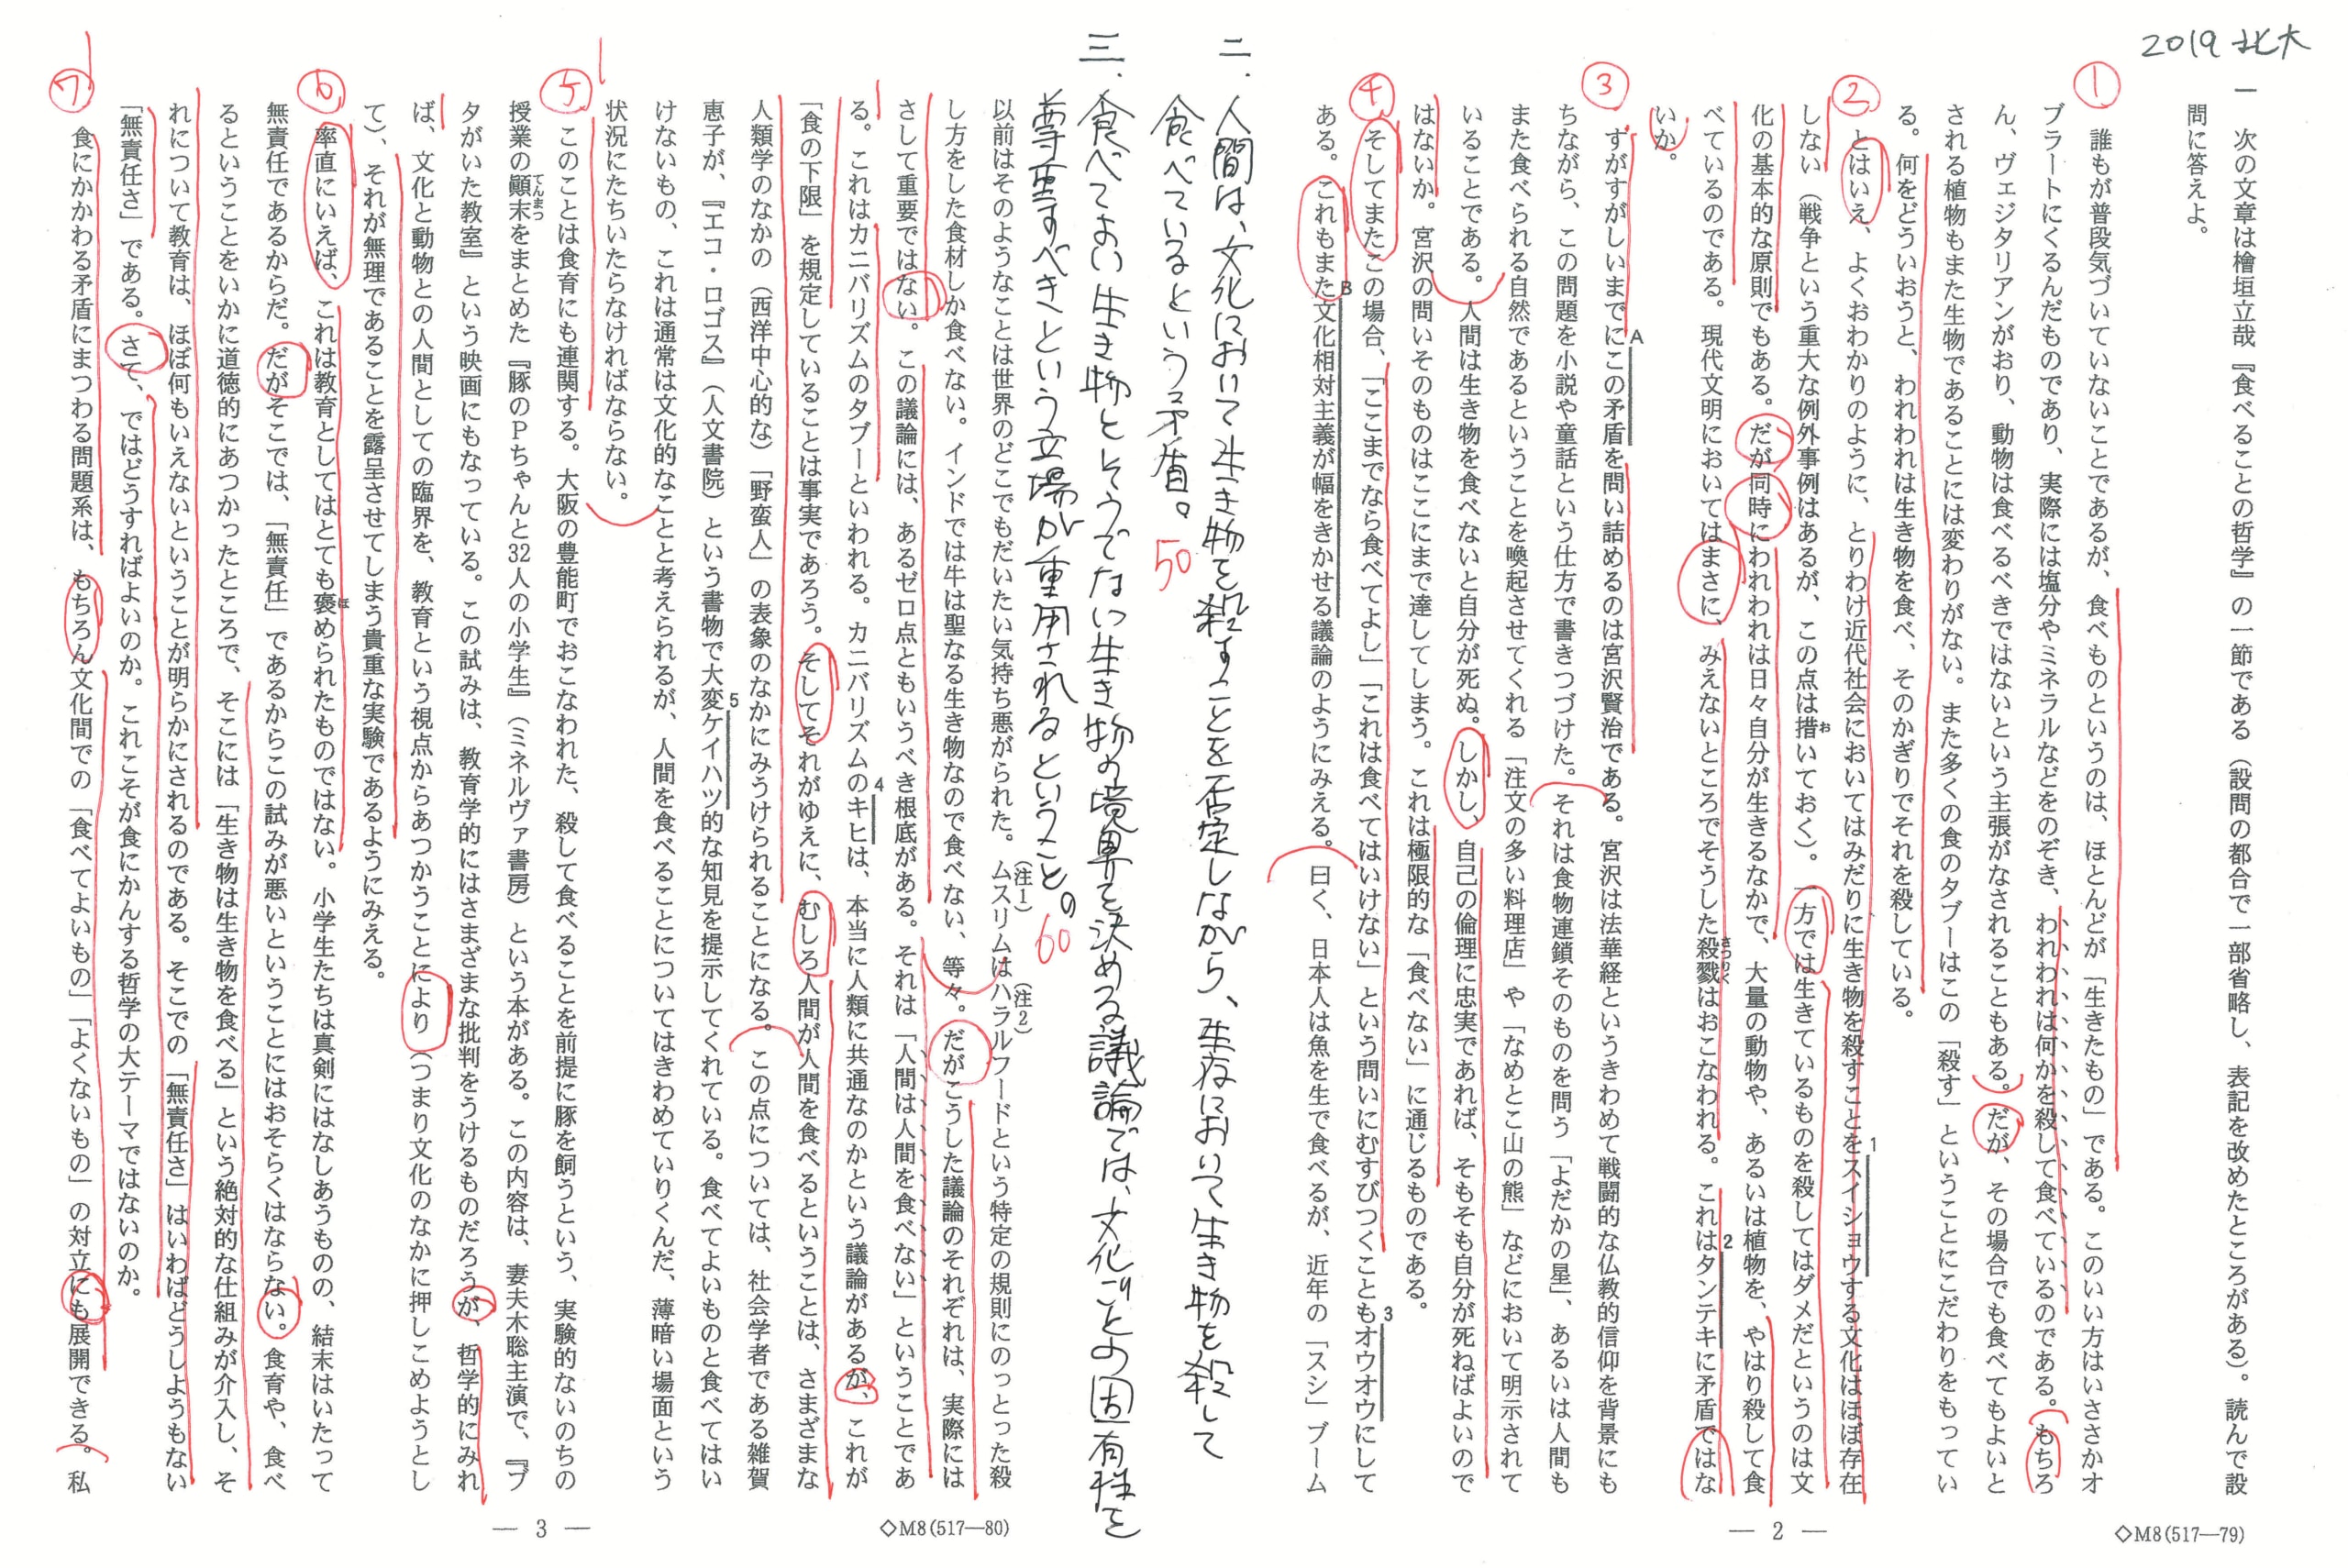 2019 北大
一　次の文章は檜垣立哉『食べることの哲学』の一節である（設問の都合で一部省略し、表記を改めたところがある）。読んで設
問に答えよ。
①
誰もが普段気づいていないことであるが、食べものというのは、ほとんどが「生きたもの」である。このいい方はいささかオ
ブラートにくるんだものであり、実際には塩分やミネラルなどをのぞき、われわれは何かを殺して食べているのである。もちろ
ん、ヴェジタリアンがおり、動物は食べるべきではないという主張がなされることもある。だが、その場合でも食べてもよいと
される植物もまた生物であることには変わりがない。また多くの食のタブーはこの「殺す」ということにこだわりをもってい
る。何をどういおうと、われわれは生き物を食べ、そのかぎりでそれを殺している。
②
とはいえ、よくおわかりのように、とりわけ近代社会においてはみだりに生き物を殺すことを1スイショウする文化はほぼ存在
しない（戦争という重大な例外事例はあるが、この点は措おいておく）。一方では生きているものを殺してはダメだというのは文
化の基本的な原則でもある。だが同時にわれわれは日々自分が生きるなかで、大量の動物や、あるいは植物を、やはり殺して食
べているのである。現代文明においてはまさに、みえないところでそうした殺戮さつりくはおこなわれる。これは2タンテキに矛盾ではな
いか。
③
すがすがしいまでにAこの矛盾を問い詰めるのは宮沢賢治である。宮沢は法華経というきわめて戦闘的な仏教的信仰を背景にも
ちながら、この問題を小説や童話という仕方で書きつづけた。それは食物連鎖そのものを問う「よだかの星」、あるいは人間も
また食べられる自然であるということを喚起させてくれる「注文の多い料理店」や「なめとこ山の熊」などにおいて明示されて
いることである。人間は生き物を食べないと自分が死ぬ。しかし、自己の倫理に忠実であれば、そもそも自分が死ねばよいので
はないか。宮沢の問いそのものはここにまで達してしまう。これは極限的な「食べない」に通じるものである。
④
そしてまたこの場合、「ここまでなら食べてよし」「これは食べてはいけない」という問いにむすびつくことも3オウオウにして
ある。これもまたB文化相対主義が幅をきかせる議論のようにみえる。曰く、日本人は魚を生で食べるが、近年の「スシ」ブーム
二．人間は、文化において生き物を殺すことを否定しながら、生存において生き物を殺して
食べているという矛盾。50
三．食べてよい生き物とそうでない生き物の境界を決める議論では、文化ごとの固有性を
尊重すべきという立場が重用されるということ。60
以前はそのようなことは世界のどこでもだいたい気持ち悪がられた。ムスリム（注1）はハラルフード（注2）という特定の規則にのっとった殺
し方をした食材しか食べない。インドでは牛は聖なる生き物なので食べない、等々。だがこうした議論のそれぞれは、実際には
さして重要ではない。この議論には、あるゼロ点ともいうべき根底がある。それは「人間は人間を食べない」ということであ
る。これはカニバリズムのタブーといわれる。カニバリズムの4キヒは、本当に人類に共通なのかという議論があるが、これが
「食の下限」を規定していることは事実であろう。そしてそれがゆえに、むしろ人間が人間を食べるということは、さまざまな
人類学のなかの（西洋中心的な）「野蛮人」の表象のなかにみうけられることになる。この点については、社会学者である雑賀
恵子が、『エコ・ロゴス』（人文書院）という書物で大変5ケイハツ的な知見を提示してくれている。食べてよいものと食べてはい
けないもの、これは通常は文化的なことと考えられるが、人間を食べることについてはきわめていりくんだ、薄暗い場面という
状況にたちいたらなければならない。
⑤
このことは食育にも連関する。大阪の豊能町でおこなわれた、殺して食べることを前提に豚を飼うという、実験的ないのちの
授業の顚末てんまつをまとめた『豚のPちゃんと32人の小学生』（ミネルヴァ書房）という本がある。この内容は、妻夫木聡主演で、『ブ
タがいた教室』という映画にもなっている。この試みは、教育学的にはさまざまな批判をうけるものだろうが、哲学的にみれ
ば、文化と動物との人間としての臨界を、教育という視点からあつかうことにより（つまり文化のなかに押しこめようとし
て）、それが無理であることを露呈させてしまう貴重な実験であるようにみえる。
⑥
率直にいえば、これは教育としてはとても褒ほめられたものではない。小学生たちは真剣にはなしあうものの、結末はいたって
無責任であるからだ。だがそこでは、「無責任」であるからこの試みが悪いということにはおそらくはならない。食育や、食べ
るということをいかに道徳的にあつかったところで、そこには「生き物は生き物を食べる」という絶対的な仕組みが介入し、そ
れについて教育は、ほぼ何もいえないということが明らかにされるのである。そこでの「無責任さ」はいわばどうしようもない
「無責任さ」である。さて、ではどうすればよいのか。これこそが食にかんする哲学の大テーマではないのか。
⑦
食にかかわる矛盾にまつわる問題系は、もちろん文化間での「食べてよいもの」「よくないもの」の対立にも展開できる。私
— 3 —
◇M8(517—80)
— 2 —
◇M8(517—79)